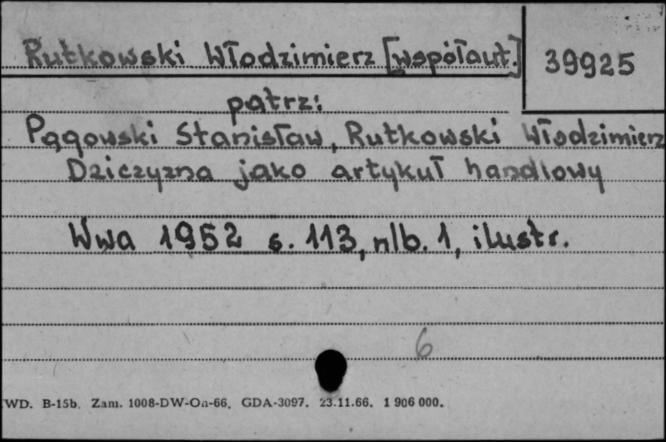 Rutkowski Włodzimierz [współaut.]
39925
patrz:
Pągowski Stanisław, Rutkowski Włodzimierz
Dziczyzna jako artykuł handlowy
Wwa 1952 s. 113, nlb. 1, ilustr.
6
WD. B-15b. Zam. 1008-DW-Oa-66. GDA-3097. 23.11.66. 1 906 000.